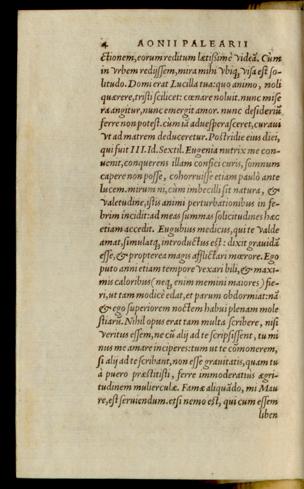 4 AONII PALEARII
ctionem, eorum reditum lætißimè videã. Cùm
in vrbem redijssem, mira mihi vbiq; visa est so-
litudo. Domi erat Lucilla tua: quo animo, noli
quærere, tristi scilicet: cœnare noluit. nunc mise
ra angitur, nunc emergit amor. nunc desideriũ
ferre non potest. cùm iã aduesperasceret, curaui
vt ad matrem deduceretur. Postridie eius diei,
qui fuit III. Id. Sextil. Eugenia nutrix me con-
uenit, conquerens illam confici curis, somnum
capere non posse, cohorruisse etiam paulò ante
lucem. mirum ni, cùm imbecilli sit natura, &
valetudine, istis animi perturbationibus in fe-
brim incidit: ad meas summas solicitudines hæc
etiam accedit. Eugubius medicus, qui te valde
amat, simulatq; introductus est: dixit grauidã
esse, & propterea magis afflictari mœrore. Ego
puto anni etiam tempore vexari bili, & maxi-
mis caloribus (neq; enim memini maiores) fie-
ri, ut tam modicè edat, et parum obdormiat: nã
& ego superiorem noctem habui plenam mole
stiarũ. Nihil opus erat tam multa scribere, nisi
veritus essem, ne cũ alij ad te scripsissent, tu mi
nus me amare inciperes: tum ut te cõmonerem,
si alij ad te scribant, non esse grauitatis, quam tu
à puero præstitisti, ferre immoderatius ægri-
tudinem mulierculæ. Famæ aliquãdo, mi Mau
re, est seruiendum. etsi nemo est, qui cum essem
liben